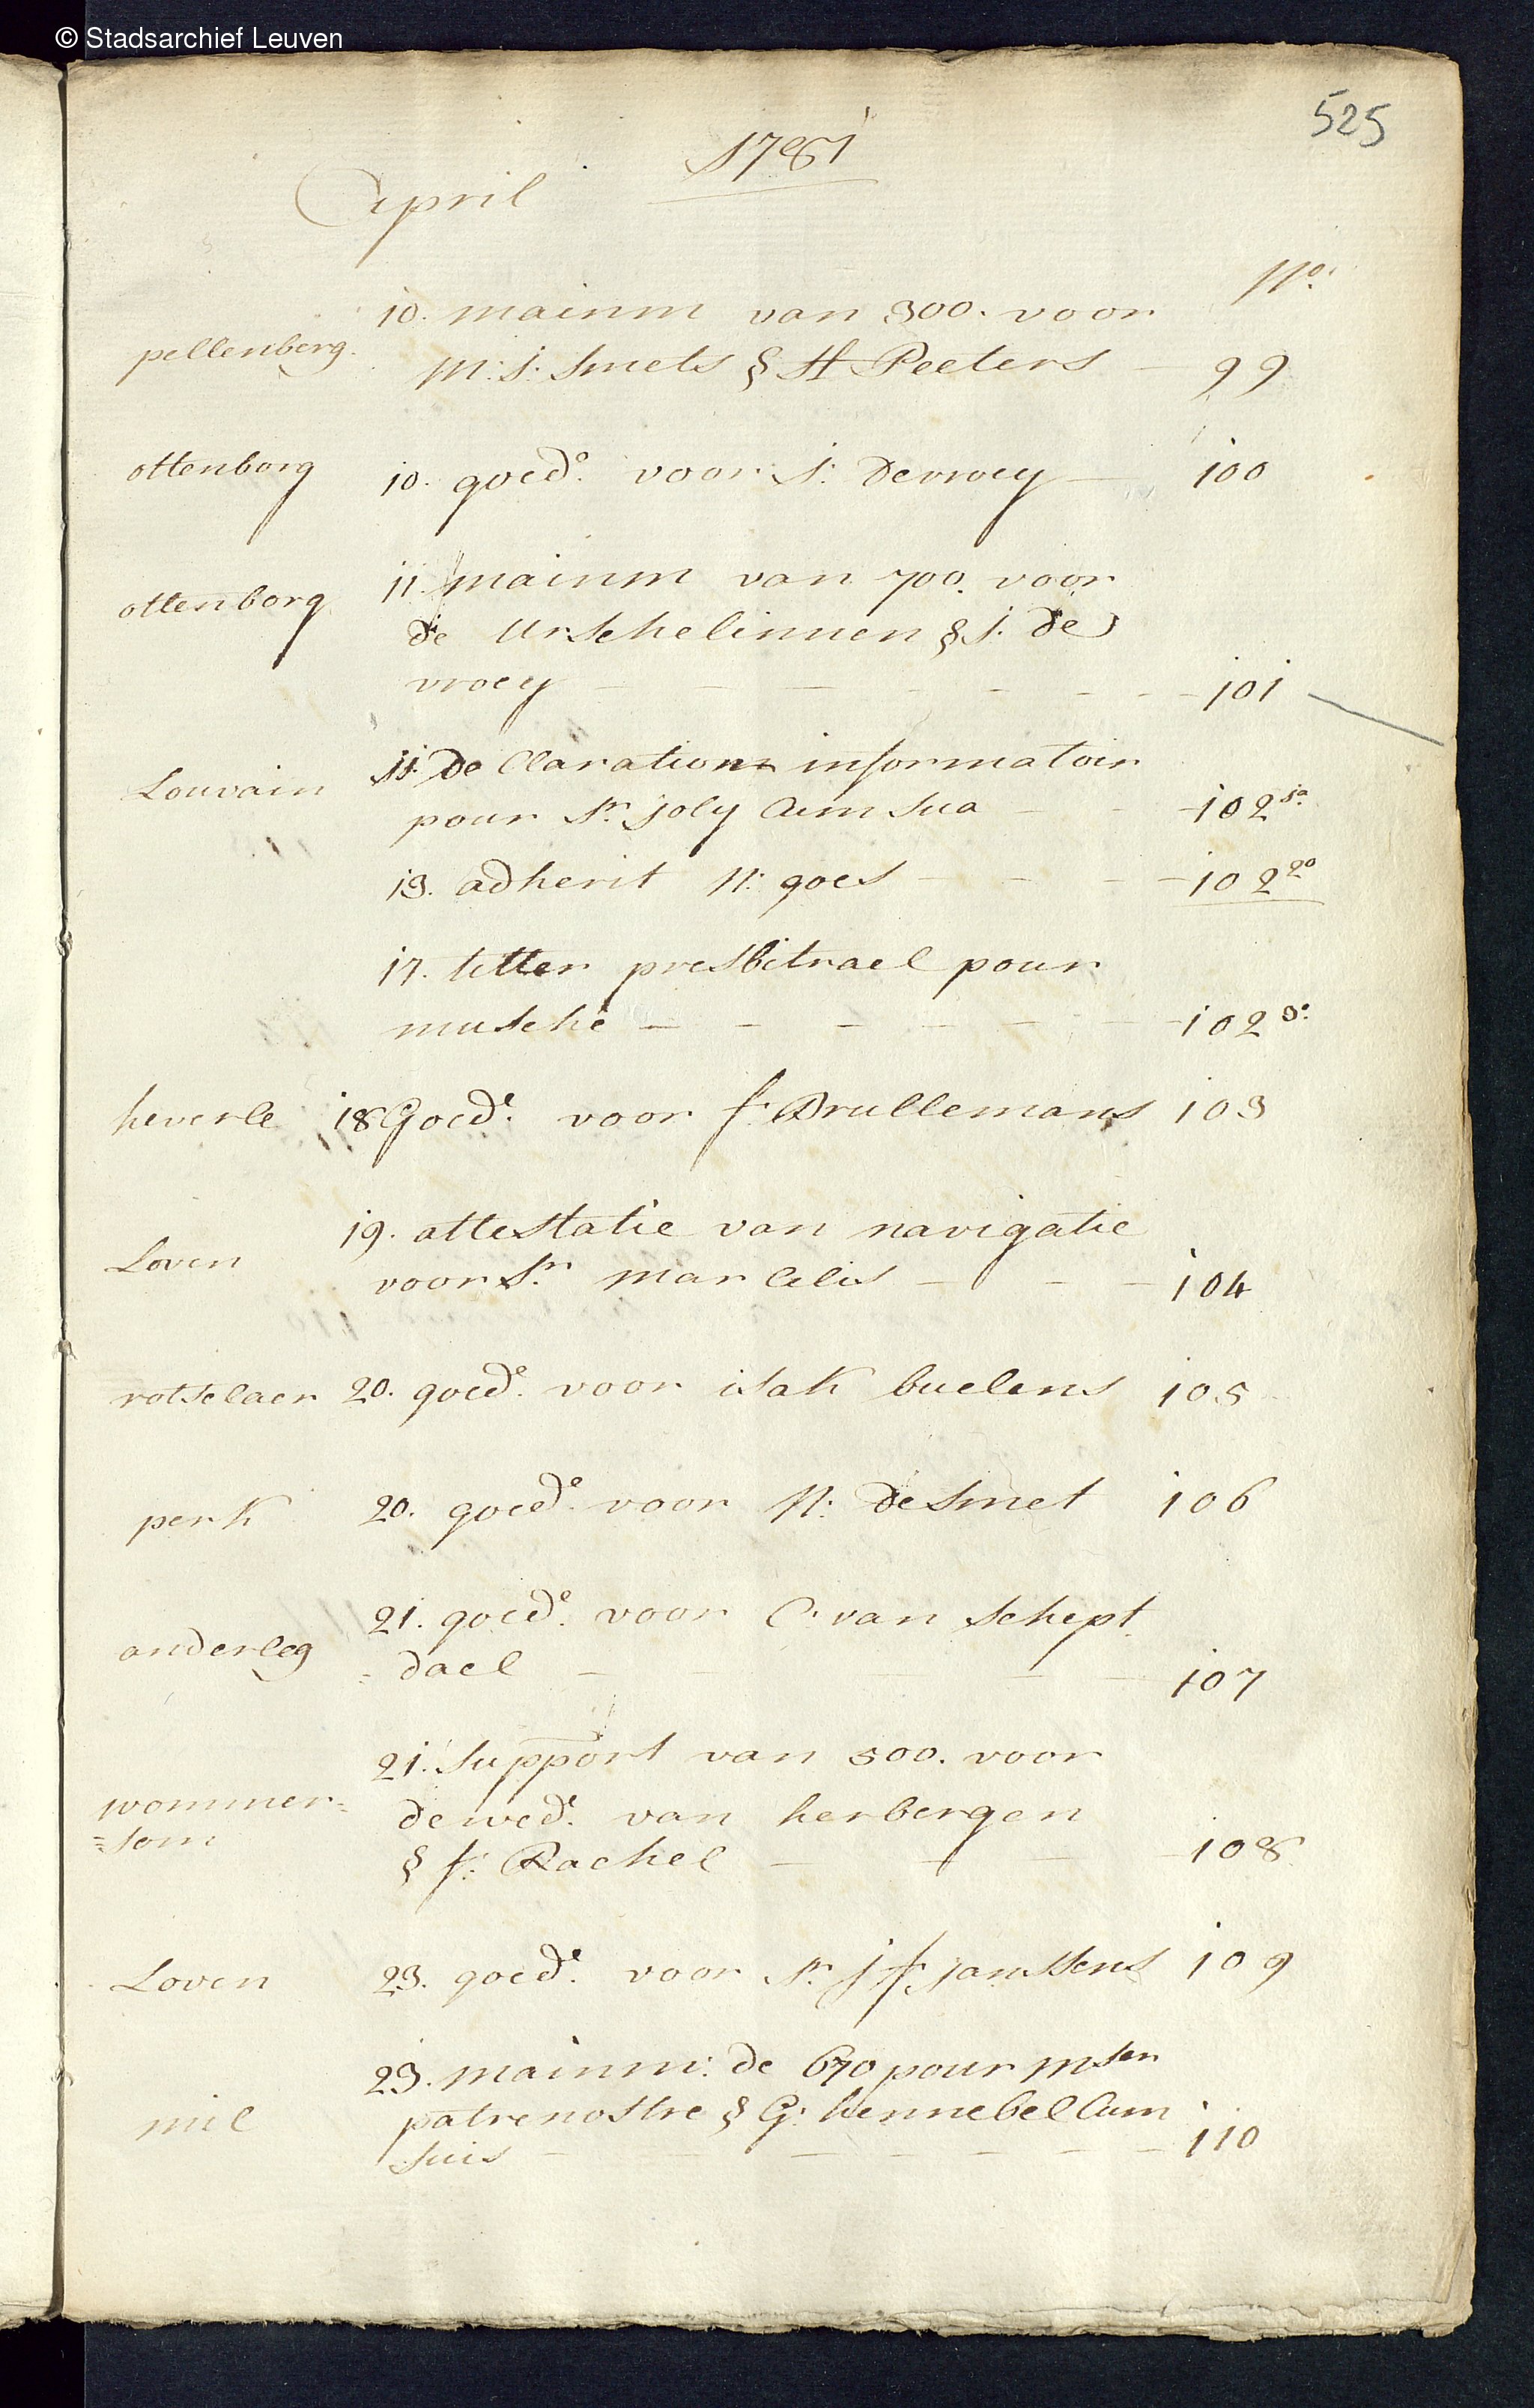 © Stadsarchief Leuven
525
1781
April
No.
10. mainm van 300. voor
pellenberg. M: J: Smets § H Peeters - 99
ottenborg 10. goede. voor J: Devroey - 100
11. mainm van 700. voor
ottenborg de Urschelinnen § J: De
vroey - - - - - - - 101
11. De Claration informatoir
Louvain pour Sr. joly Cum Sua - - 102 1o.
13. adherit N: goes - - - 102 2o
17. letter presbitrael pour
musche - - - - - - 102 3o.
heverle 18 Goede. voor f: Brullemans 103
19. attestatie van navigatie
Loven voor Sr. Marcelis - - - 104
rotselaer 20. goede. voor isak buelens 105
perk 20. goede. voor N: De Smet 106
21. goede. voor C: van Schept
anderleg = dael - - - - 107
21. Support van 500. voor
wommer= de wede. van herbergen
=som § f: Rachel - - - - 108
Loven 23. goede. voor Sr. J f: janssens 109
23. mainm: de 670 pour M
mil patrenostre § G: hennebel Cum
suis - - - - - - 110